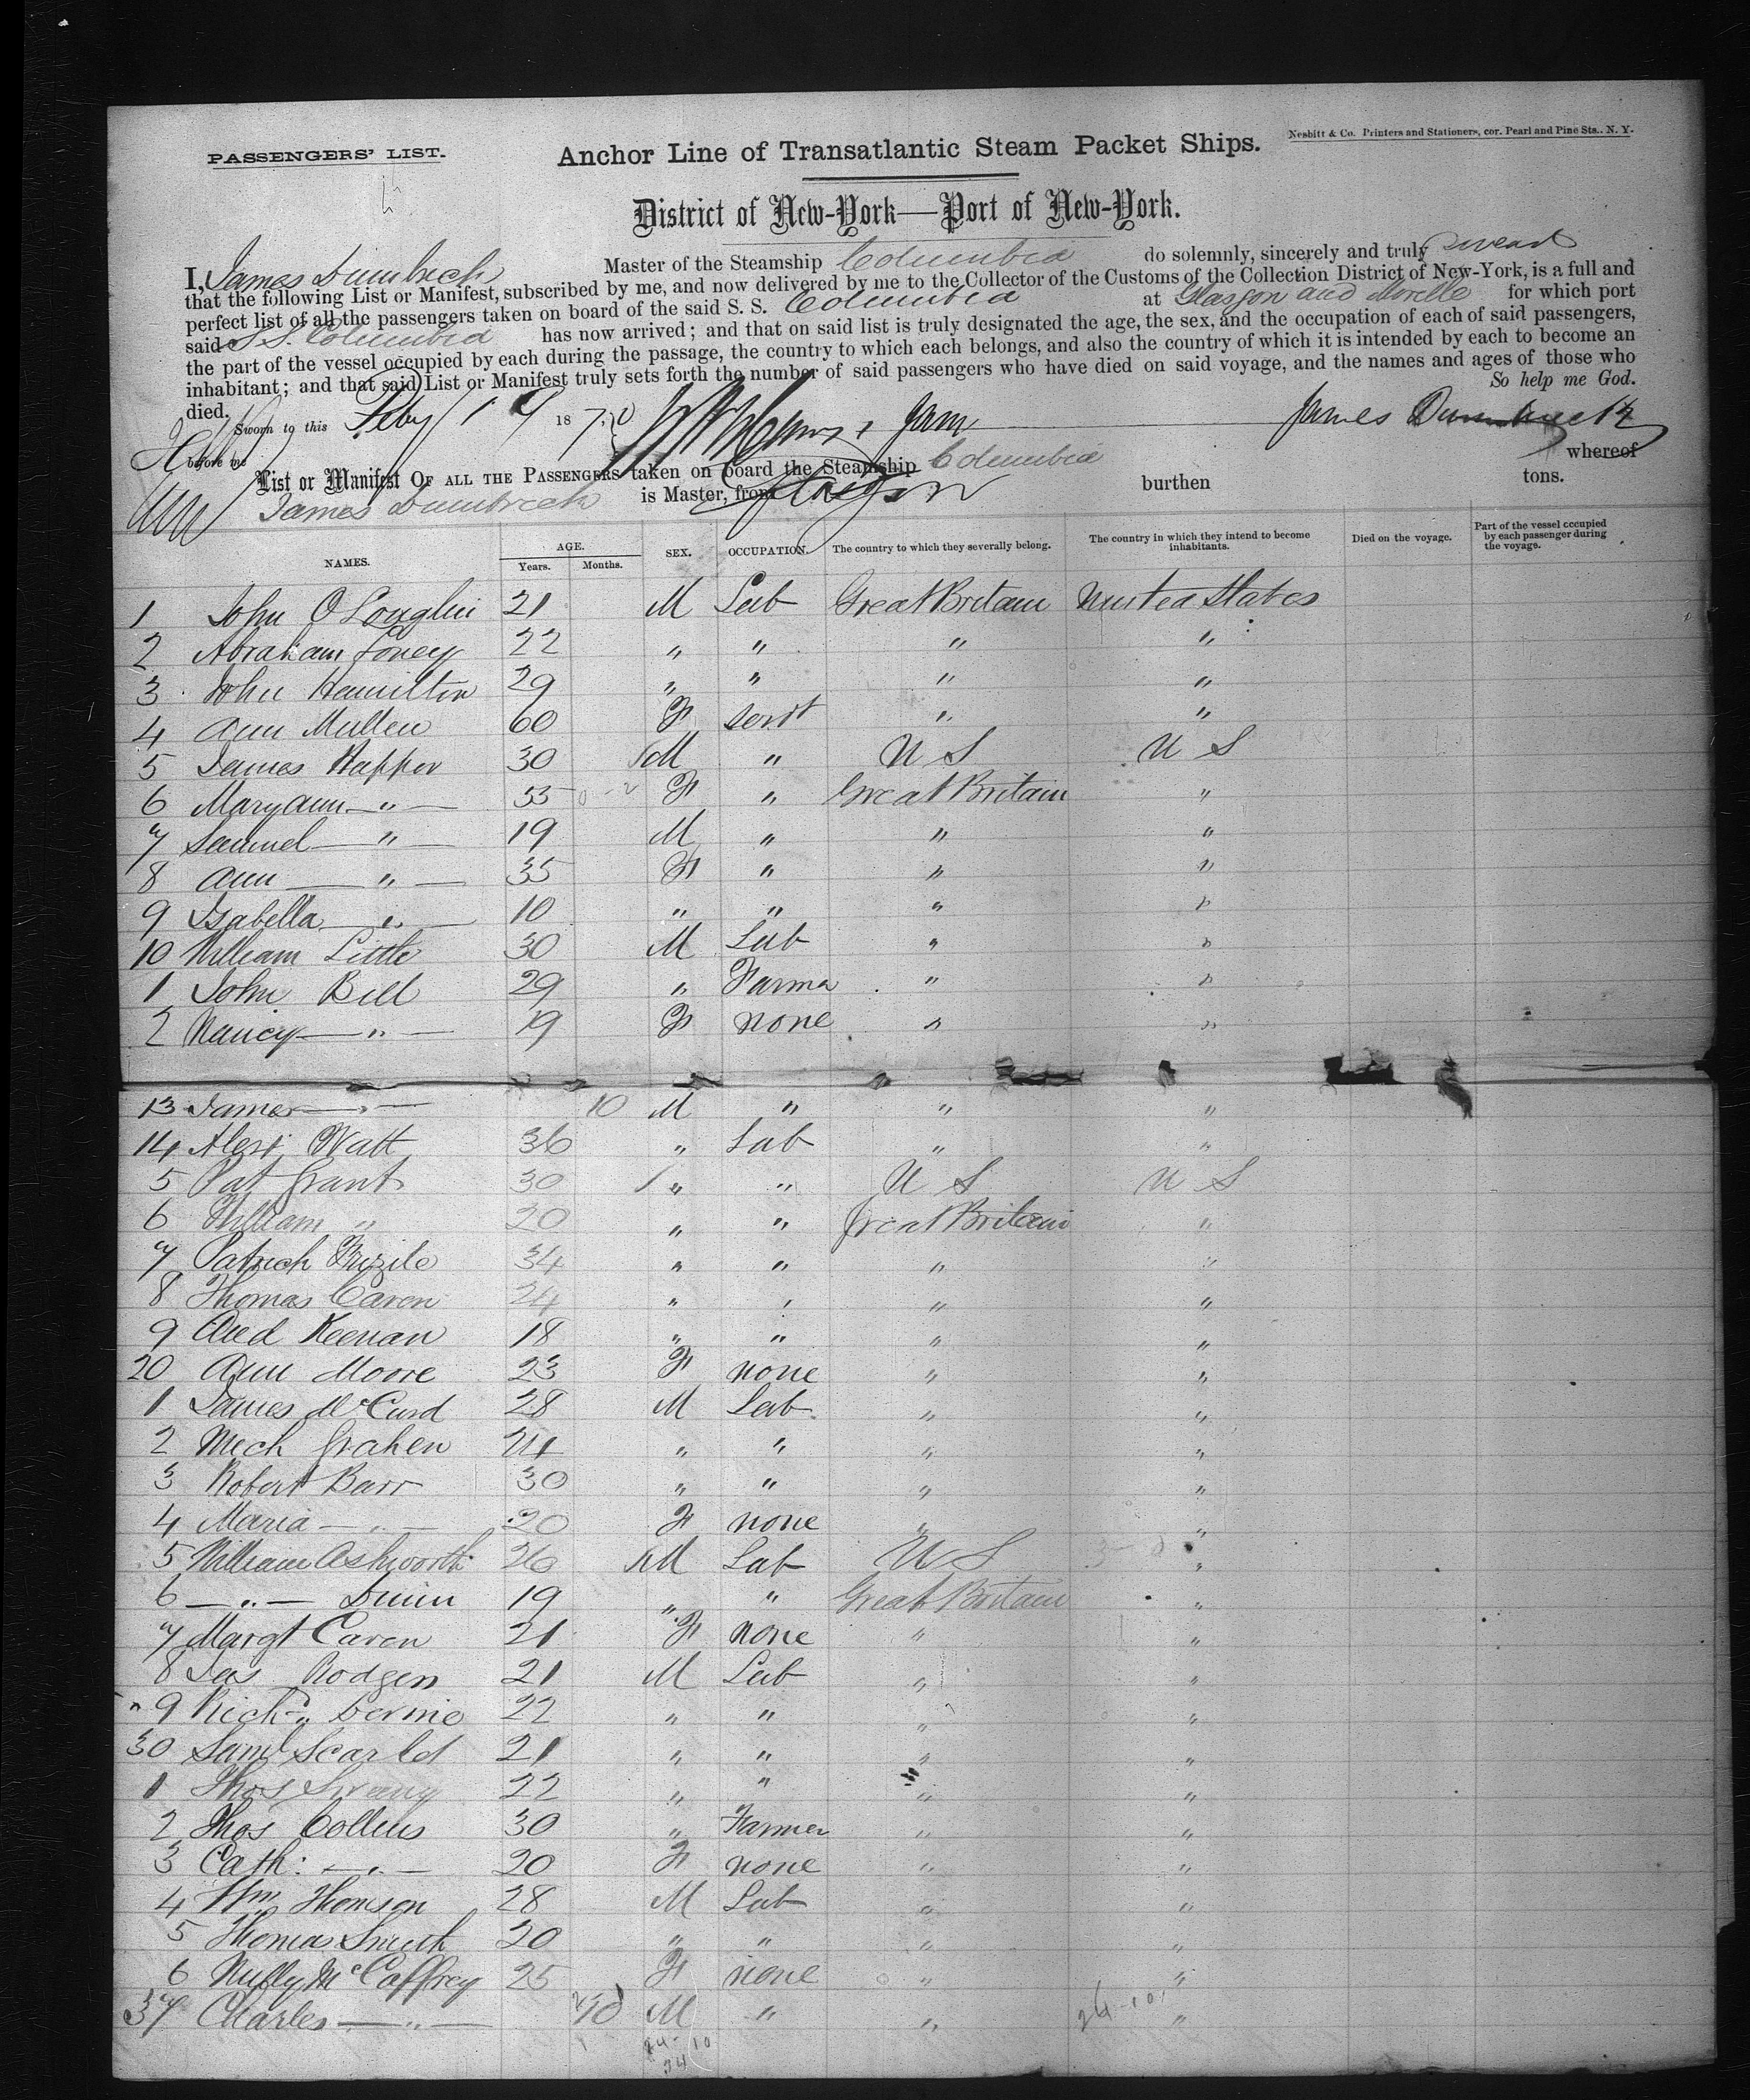 PASSENGERS' LIST.
Nesbitt & Co. Printers and Stationers, cor. Pearl and Pine Sts., N. Y.
Anchor Line of Transatlantic Steam Packet Ships.
District of New-York—Port of New-York.
I, James Dumbrech Master of the Steamship Columbia do solemnly, sincerely and truly swear
that the following List or Manifest, subscribed by me, and now delivered by me to the Collector of the Customs of the Collection District of New-York, is a full and
perfect list of all the passengers taken on board of the said S. S. Columbia at Glasgow and Moville for which port
said S.S. Columbia has now arrived; and that on said list is truly designated the age, the sex, and the occupation of each of said passengers,
the part of the vessel occupied by each during the passage, the country to which each belongs, and also the country of which it is intended by each to become an
inhabitant; and that said List or Manifest truly sets forth the number of said passengers who have died on said voyage, and the names and ages of those who
died. So help me God.
Sworn to this Feby 17 1870
before me
List or Manifest OF ALL THE PASSENGERS taken on board the Steamship Columbia whereof
James Dumbrech is Master, from Glasgow burthen tons.
NAMES. AGE. Years. Months. SEX. OCCUPATION. The country to which they severally belong. The country in which they intend to become inhabitants. Died on the voyage. Part of the vessel occupied by each passenger during the voyage.
1 John O Loughlin 21 M Lab Great Britain United States
2 Abraham Loney 22 " " " "
3 John Hamilton 29 " " " "
4 Ann Mullen 60 F servt " "
5 James Happer 30 M " U S U S
6 Maryann " 55 F " Great Britain "
7 Samuel " 19 M " " "
8 Ann " 35 F " " "
9 Isabella " 10 " " " "
10 William Little 30 M Lab " "
1 John Bell 29 " Farmer " "
2 Nancy " 19 F none " "
13 James " 10 M " " "
14 Alexr Watt 36 " Lab " "
5 Pat Grant 30 " " U S U S
6 William " 20 " " Great Britain "
7 Patrick 34 " " " "
8 Thomas Caven 24 " " " "
9 Keenan 18 " " " "
20 Ann Moore 23 F none " "
1 James McCurd 28 M Lab " "
2 Mich Grahen 24 " " " "
3 Robert Barr 30 " " " "
4 Maria " 20 F none " "
5 William Ashworth 26 M Lab U S "
6 " Dunn 19 " " Great Britain "
7 Margt Caven 21 F none " "
8 Jas Rodgers 21 M Lab " "
9 Richd 22 " " " "
30 Saml 21 " " " "
1 Thos 22 " " " "
2 Thos Collins 30 " Farmer " "
3 Cath: " 20 F none " "
4 Wm Thomson 28 M Lab " "
5 Thomas Smith 20 " " " "
6 McCaffrey 25 F none " "
37 Charles " 10 M " " "
24-10
34